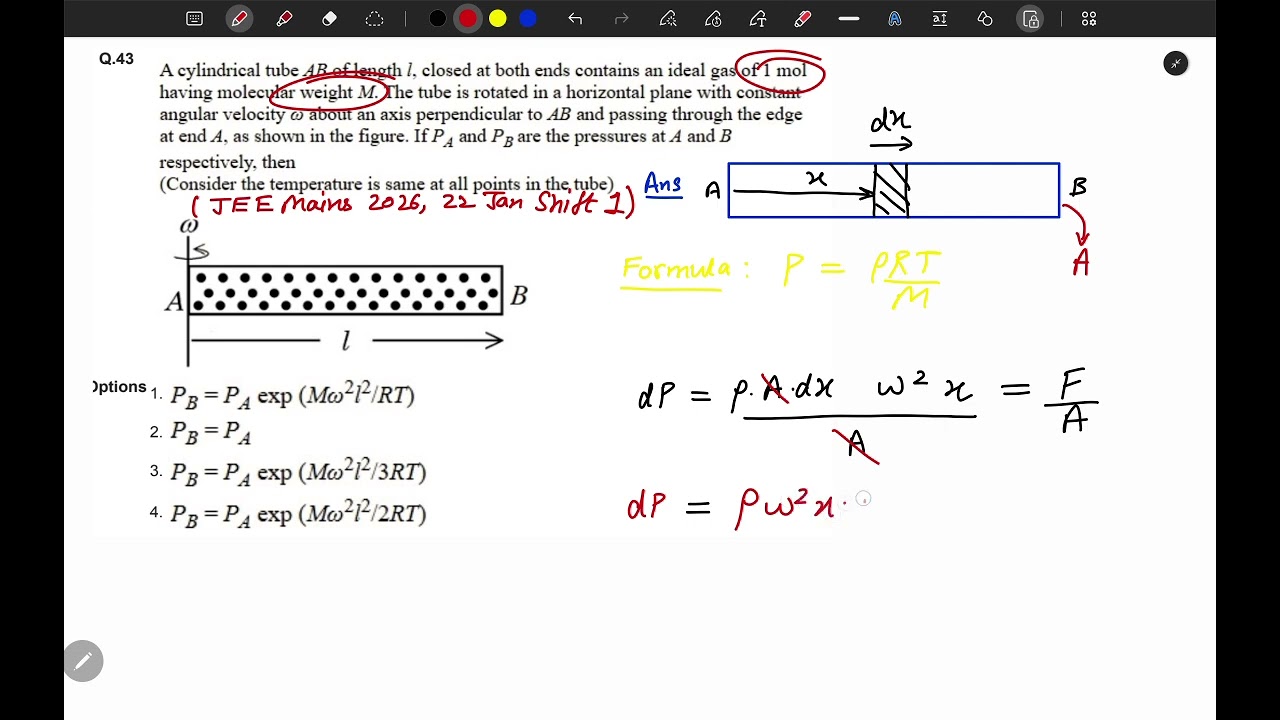 Q.43
A cylindrical tube AB of length l, closed at both ends contains an ideal gas of 1 mol
having molecular weight M. The tube is rotated in a horizontal plane with constant
angular velocity ω about an axis perpendicular to AB and passing through the edge
at end A, as shown in the figure. If P_A and P_B are the pressures at A and B
respectively, then
(Consider the temperature is same at all points in the tube)
( JEE Mains 2026, 22 Jan Shift 1)
ω
A B
l
Options
1. P_B = P_A exp (Mω²l²/RT)
2. P_B = P_A
3. P_B = P_A exp (Mω²l²/3RT)
4. P_B = P_A exp (Mω²l²/2RT)
Ans
dx
A x B
A
Formula : P = ρRT/M
dP = ρ.A.dx ω² x / A = F/A
dP = ρω²x.